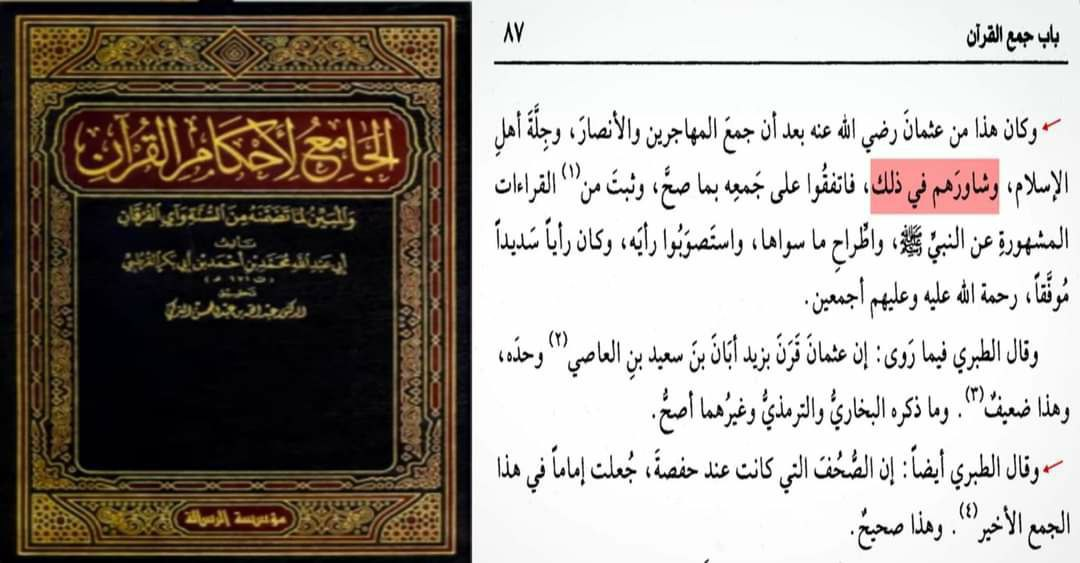 الجامع لأحكام القرآن
والمبين لما تضمنه من السنة وآي الفرقان
تأليف
أبي عبد الله محمد بن أحمد بن أبي بكر القرطبي
(ت ٦٧١ هـ)
تحقيق
الدكتور عبد الله بن عبد المحسن التركي
مؤسسة الرسالة
باب جمع القرآن
٨٧
وكان هذا من عثمانَ رضي الله عنه بعد أن جمعَ المهاجرين والأنصارَ، وجِلَّةَ أهلِ
الإسلام، وشاورَهم في ذلك، فاتفقُوا على جَمعِه بما صحَّ، وثبتَ من(١) القراءات
المشهورةِ عن النبيِّ ﷺ، واطِّراحِ ما سواها، واستَصوَبُوا رأيَه، وكان رأياً سَديداً
مُوفَّقاً، رحمة الله عليه وعليهم أجمعين.
وقال الطبري فيما رَوى: إن عثمانَ قَرَنَ بزيد أبَانَ بنَ سعيد بنِ العاصي(٢) وحدَه،
وهذا ضعيفٌ(٣). وما ذكره البخاريُّ والترمذيُّ وغيرُهما أصحُّ.
وقال الطبري أيضاً: إن الصُّحُفَ التي كانت عند حفصةَ، جُعلت إماماً في هذا
الجمع الأخير(٤). وهذا صحيحٌ.